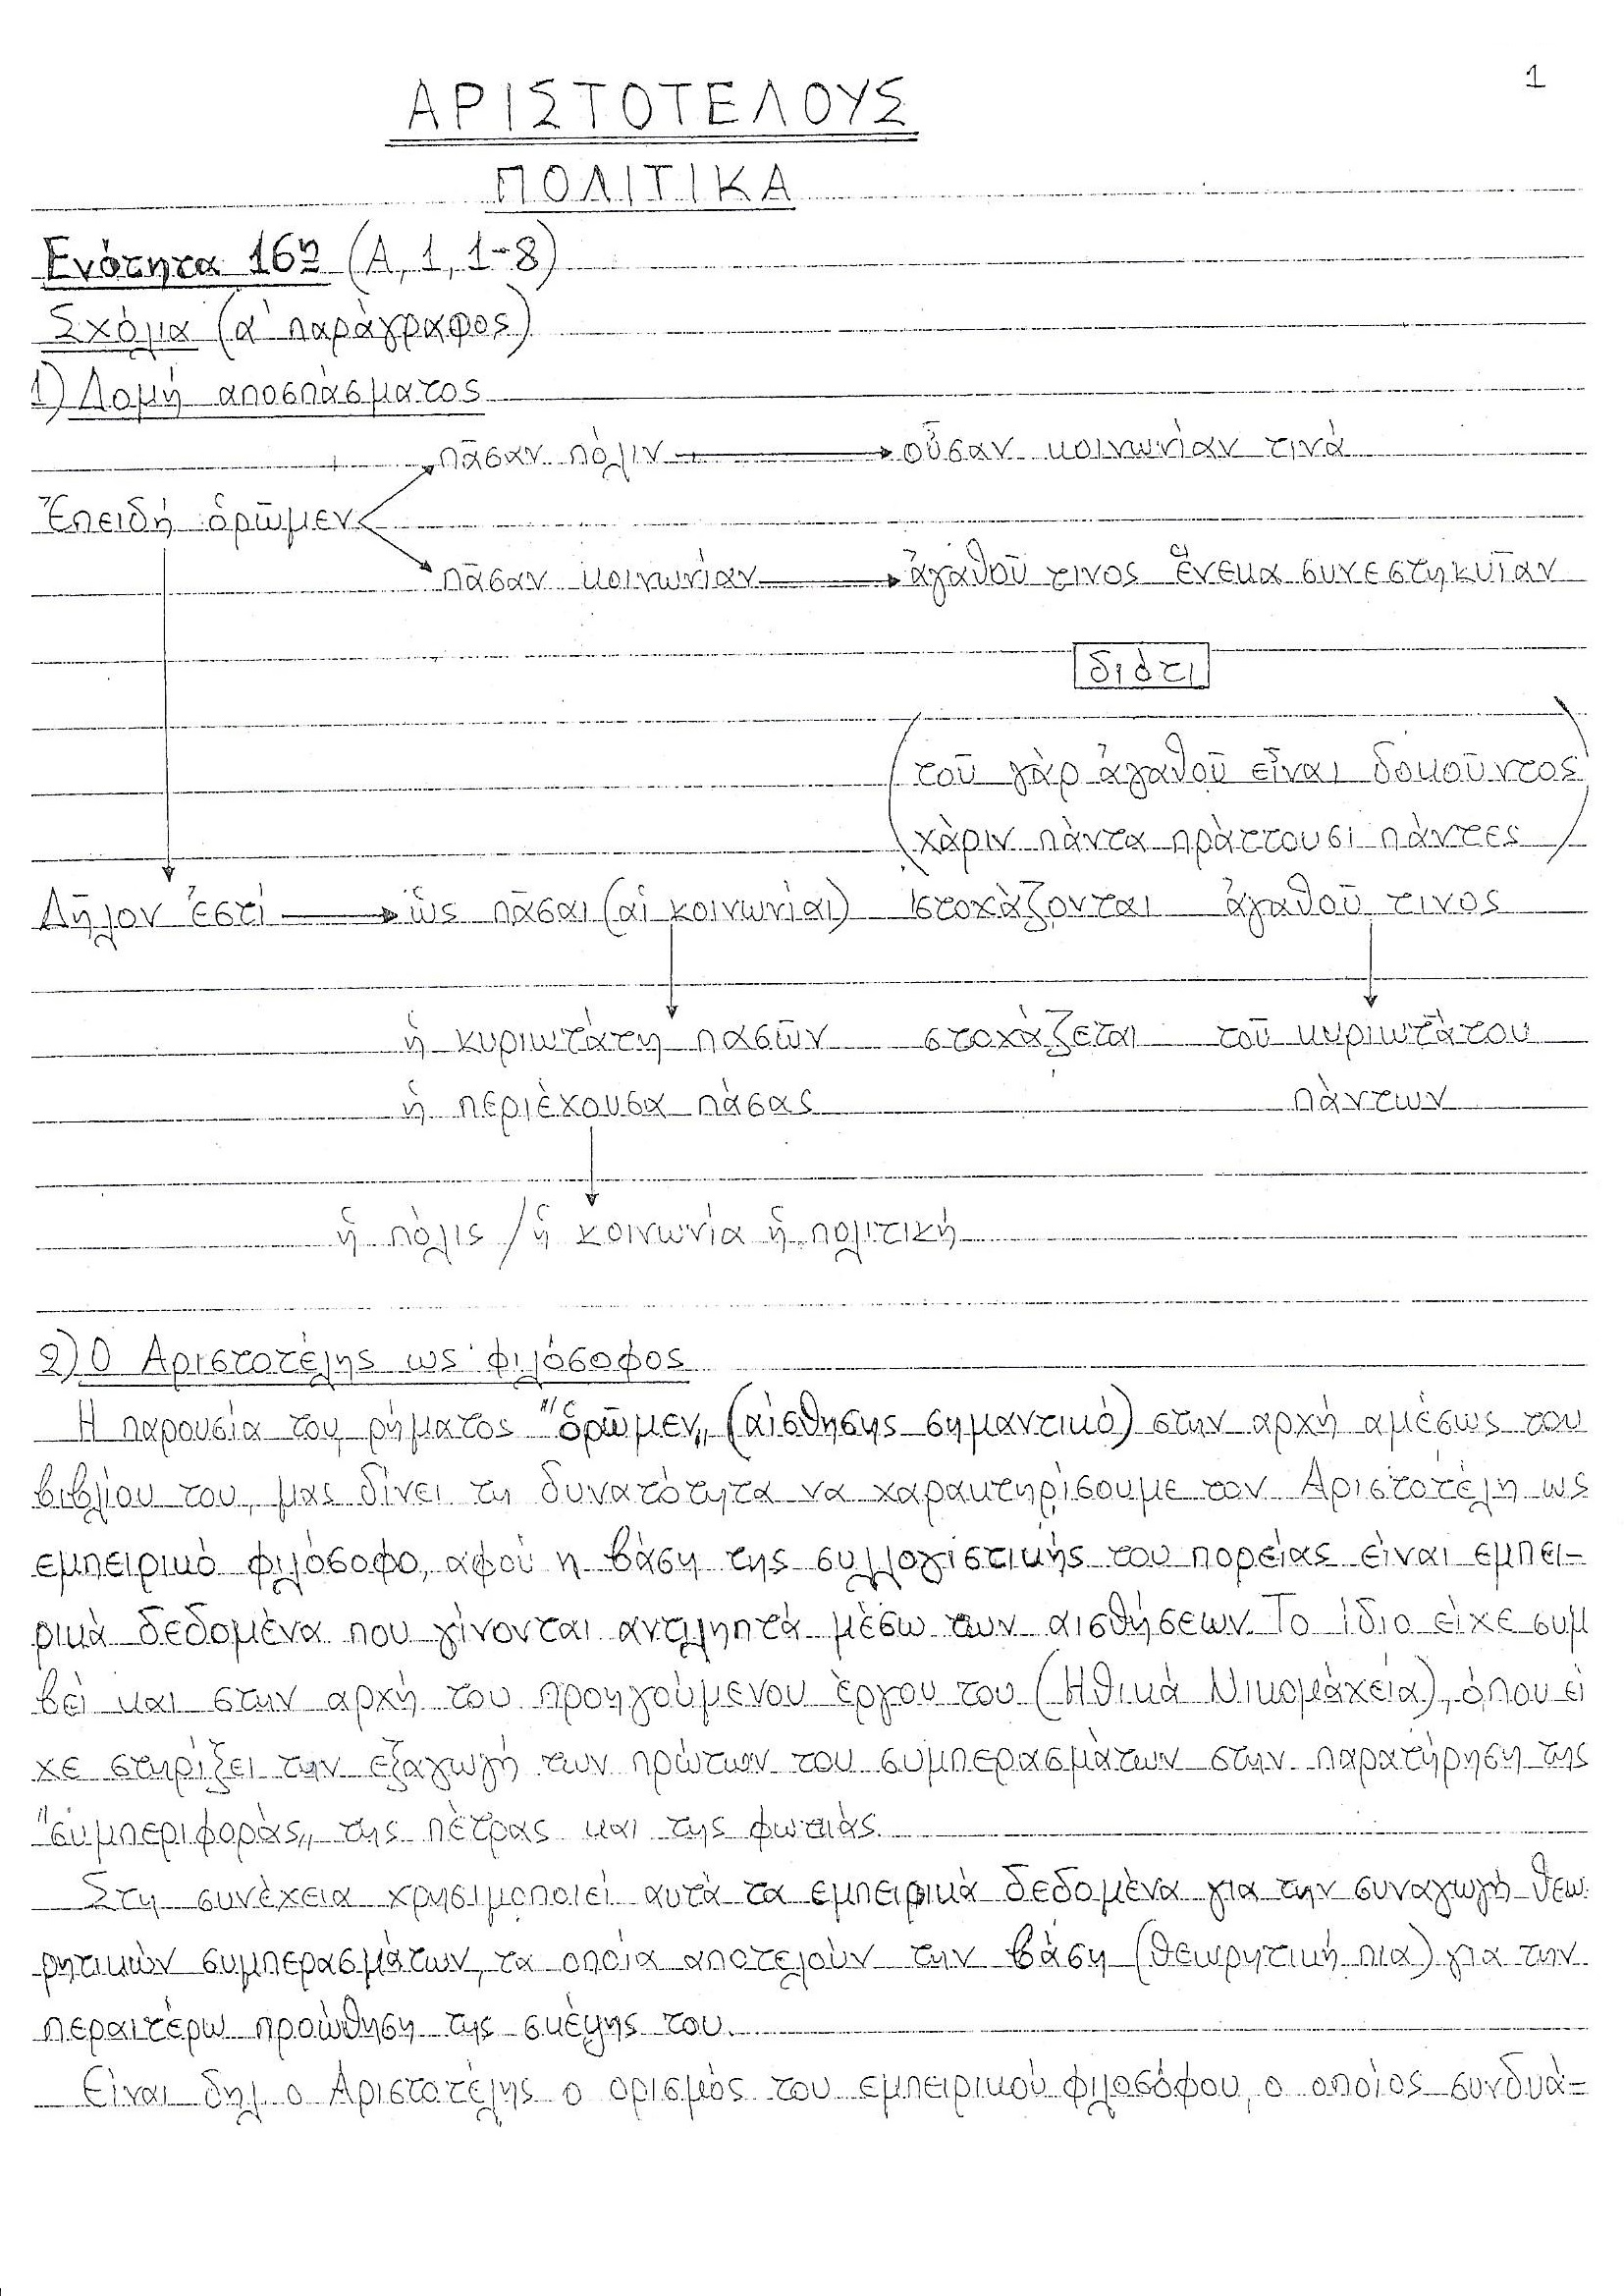 1
ΑΡΙΣΤΟΤΕΛΟΥΣ
ΠΟΛΙΤΙΚΑ
Ενότητα 16η (Α, 1, 1-8)
Σχόλια (α' παράγραφος)
1) Δομή αποσπάσματος
πᾶσαν πόλιν οὖσαν κοινωνίαν τινά
Ἐπειδή ὁρῶμεν
πᾶσαν κοινωνίαν ἀγαθοῦ τινος ἕνεκα συνεστηκυῖαν
διότι
(τοῦ γάρ ἀγαθοῦ εἶναι δοκοῦντος
χάριν πάντα πράττουσι πάντες)
Δῆλον ἐστί ὡς πᾶσαι (αἱ κοινωνίαι) στοχάζονται ἀγαθοῦ τινος
ἡ κυριωτάτη πασῶν στοχάζεται τοῦ κυριωτάτου
ἡ περιέχουσα πάσας πάντων
ἡ πόλις / ἡ κοινωνία ἡ πολιτική
2) Ο Αριστοτέλης ως φιλόσοφος
Η παρουσία του ρήματος "ὁρῶμεν,, (αἰσθησης σημαντικό) στην αρχή αμέσως του
βιβλίου του, μας δίνει τη δυνατότητα να χαρακτηρίσουμε τον Αριστοτέλη ως
εμπειρικό φιλόσοφο, αφού η βάση της συλλογιστικής του πορείας είναι εμπει-
ρικά δεδομένα που γίνονται αντιληπτά μέσω των αισθήσεων. Το ίδιο είχε συμ
βεί και στην αρχή του προηγούμενου έργου του (Ηθικά Νικομάχεια), όπου εί
χε στηρίξει την εξαγωγή των πρώτων του συμπερασμάτων στην παρατήρηση της
"συμπεριφοράς,, της πέτρας και της φωτιάς.
Στη συνέχεια χρησιμοποιεί αυτά τα εμπειρικά δεδομένα για την συναγωγή θεω-
ρητικών συμπερασμάτων, τα οποία αποτελούν την βάση (θεωρητική πια) για την
περαιτέρω προώθηση της σκέψης του.
Είναι δηλ ο Αριστοτέλης ο ορισμός του εμπειρικού φιλοσόφου, ο οποίος συνδυά-